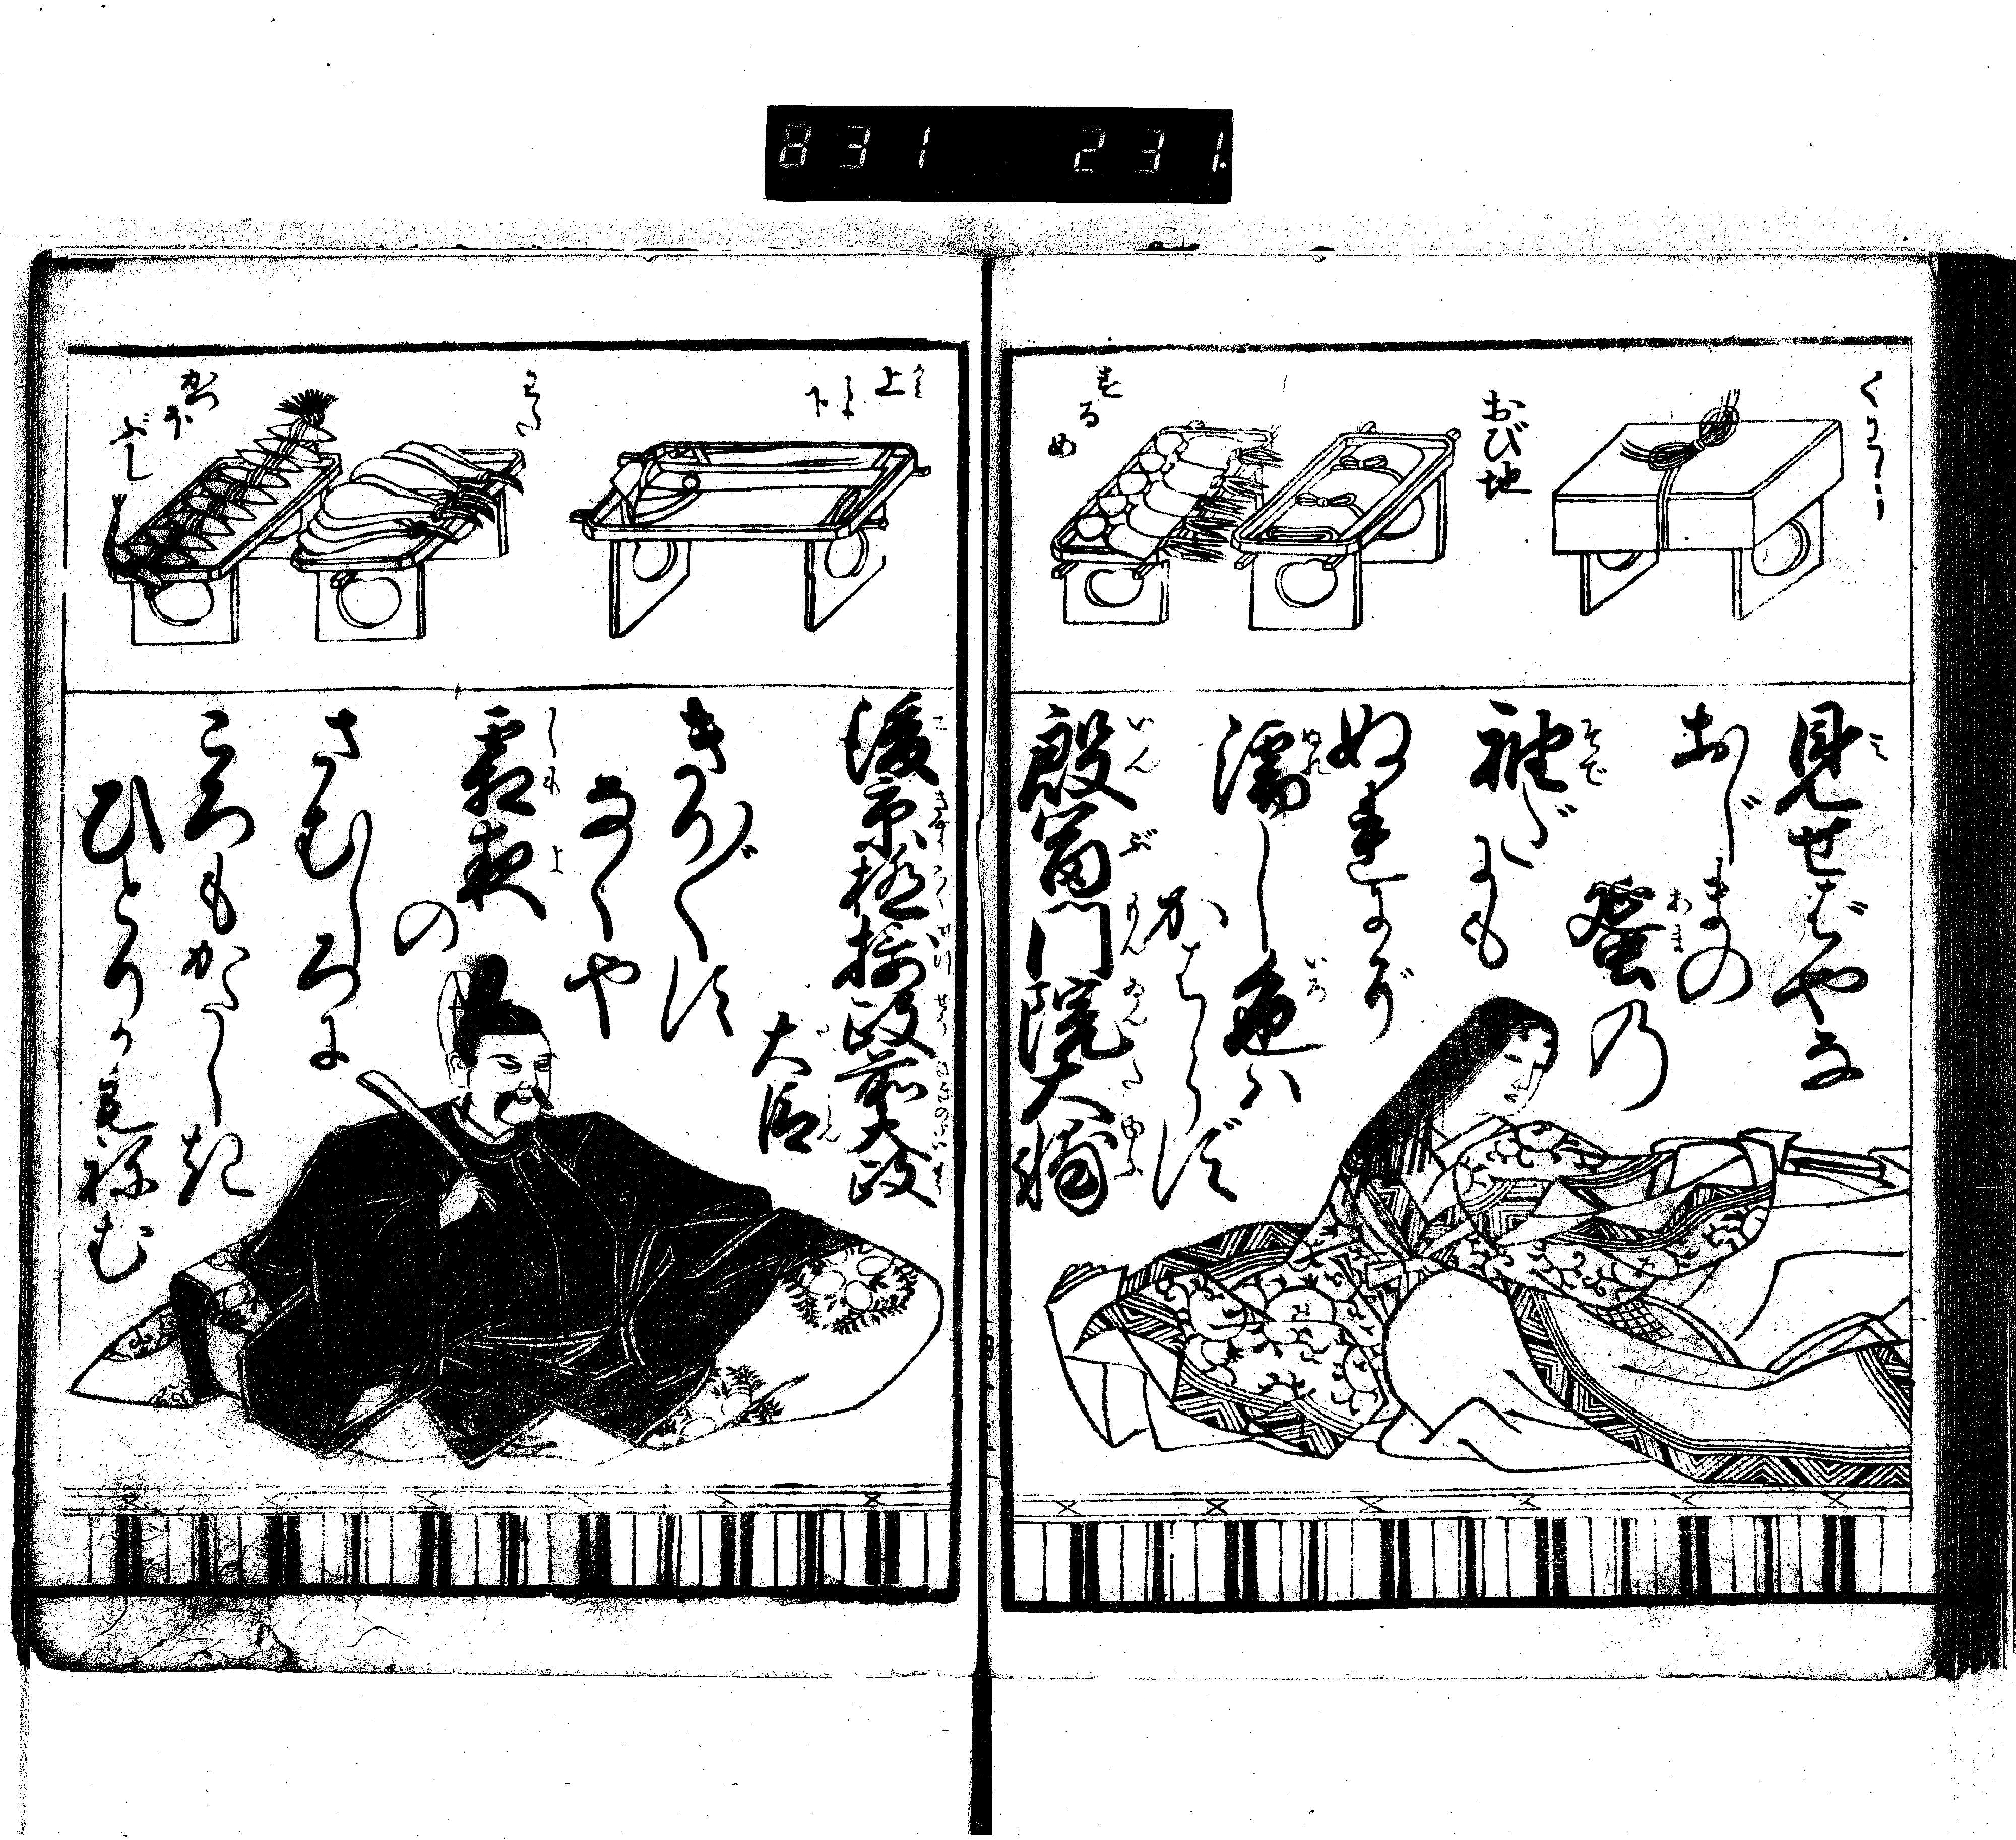 831 231.
おび地
するめ
見せばやな
おじまの
蜑の
袖だにも
ぬれにぞ
濡し色ハ
かはらず
殷富門院大輔
いんぶもんゐんたゆふ
上
下
かつ
ぶし
後京極摂政前太政
大臣
きりぎりす
なくや
霜夜
の
さむしろに
ころもかたしき
ひとりか も 祢む